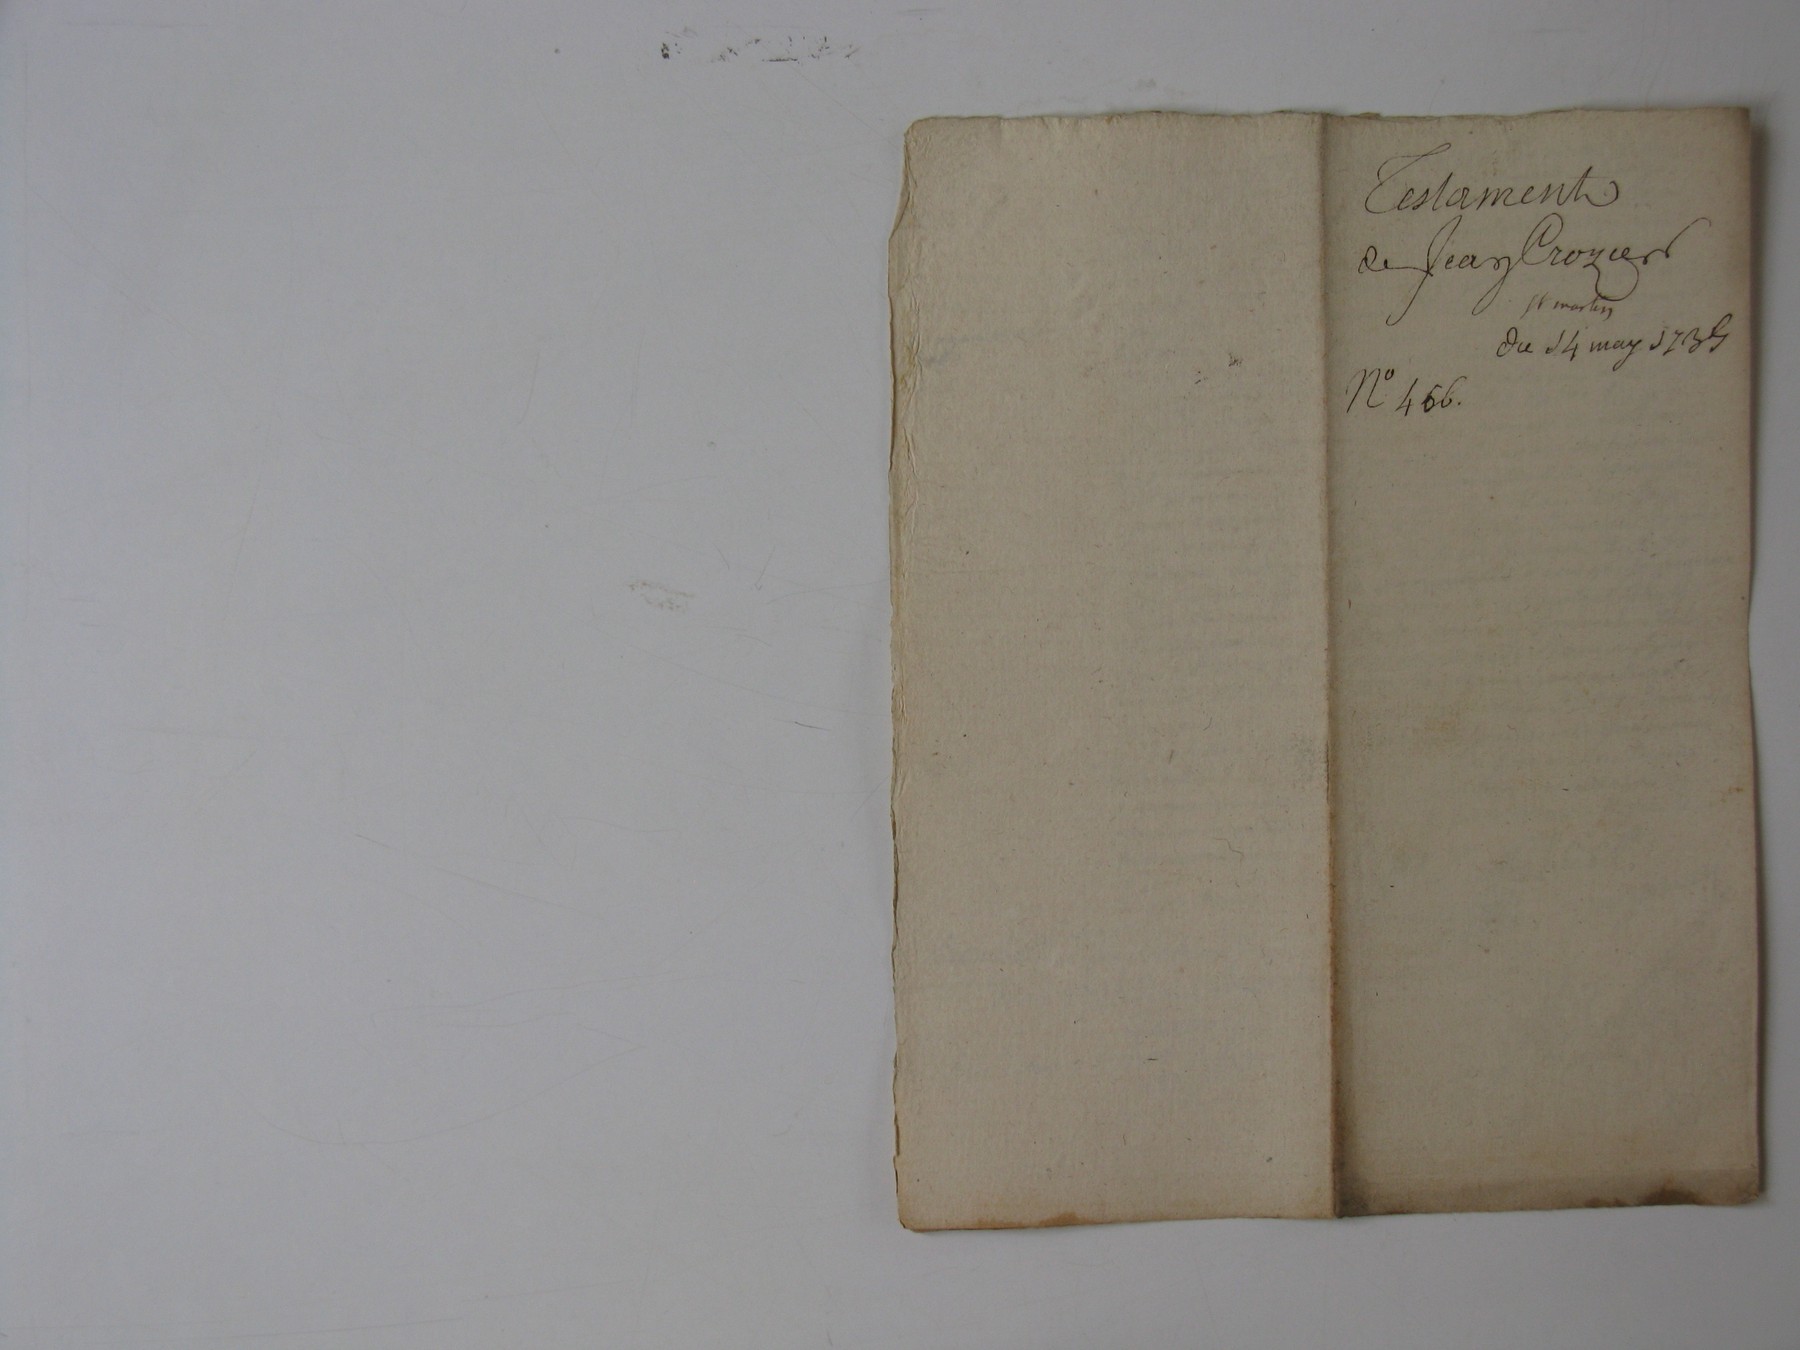 Testament
de Jean Crozier
st martin
du 14 may 173
N° 466.